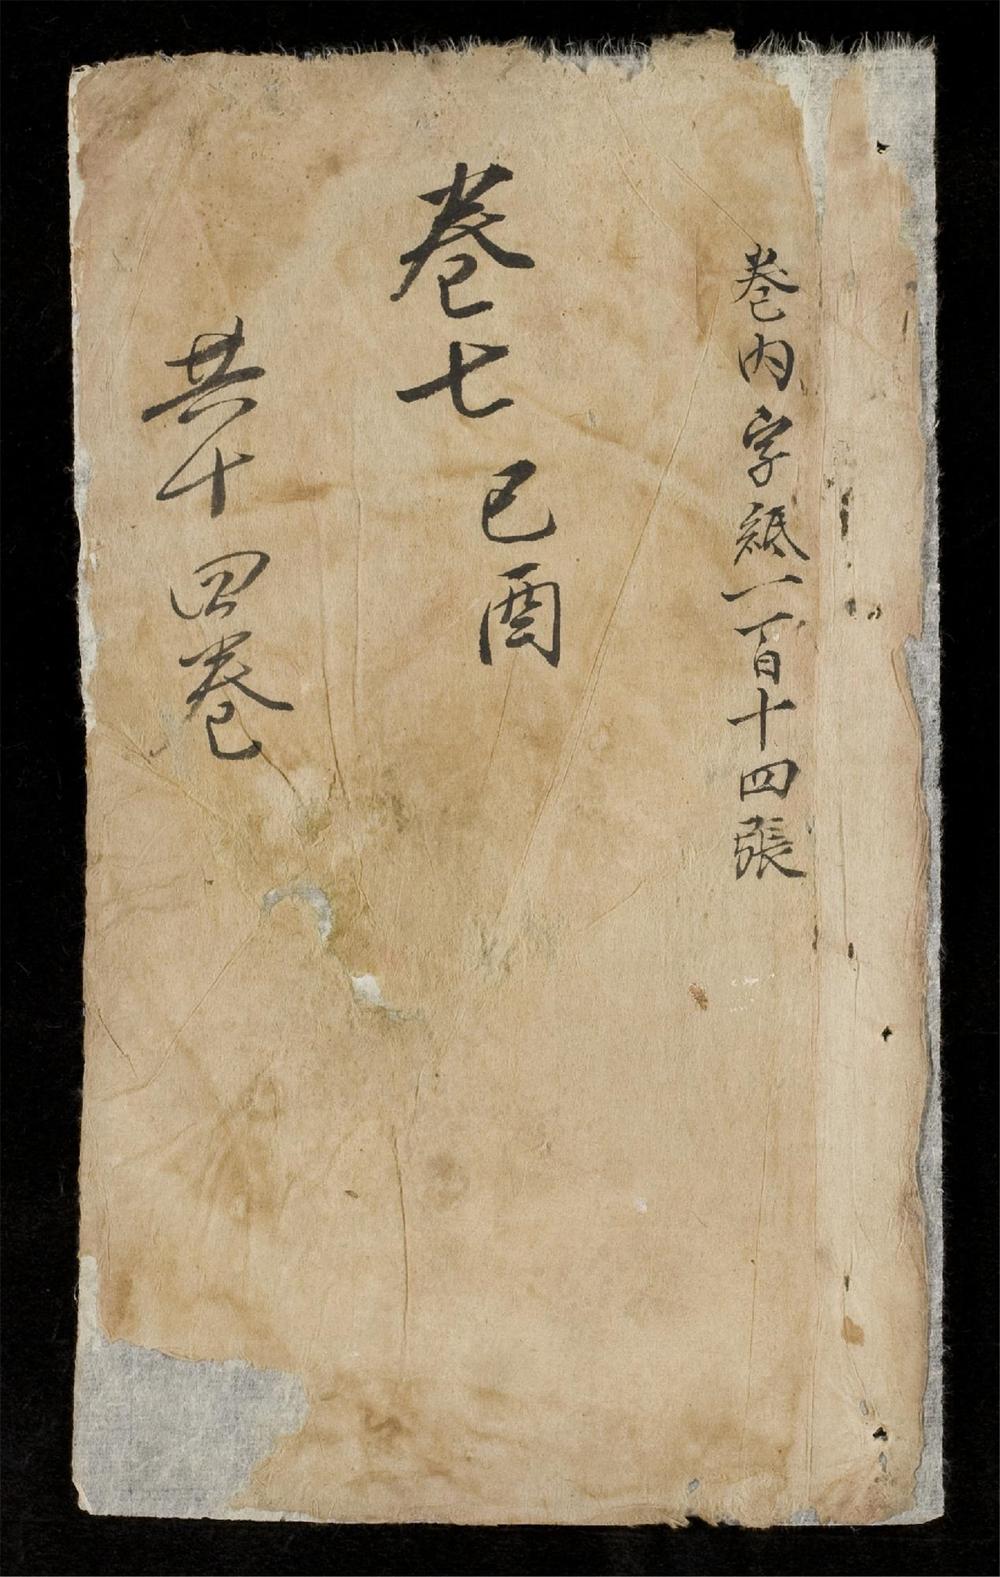 卷內字紙一百十四張
卷七
己酉
共十四卷